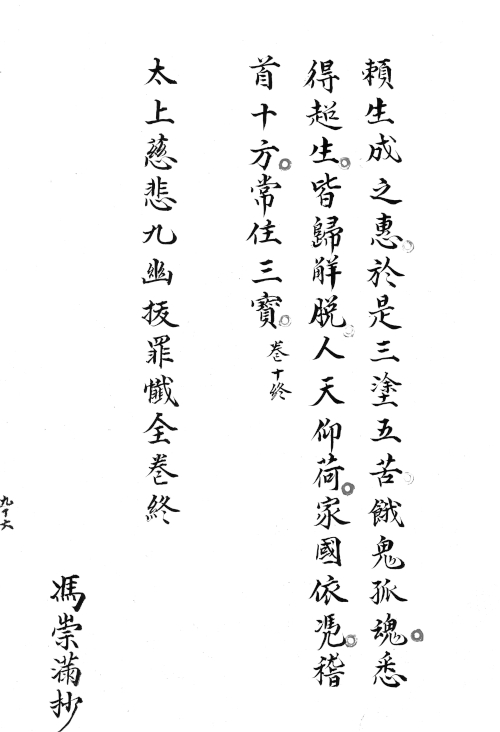 頼生成之惠於是三塗五苦餓鬼孤魂悉
得超生皆歸觧脱人天仰荷家國依凴稽
首十方常住三寶卷十終
太上慈悲九幽抜罪懴全卷終
九十六
馮崇滿抄